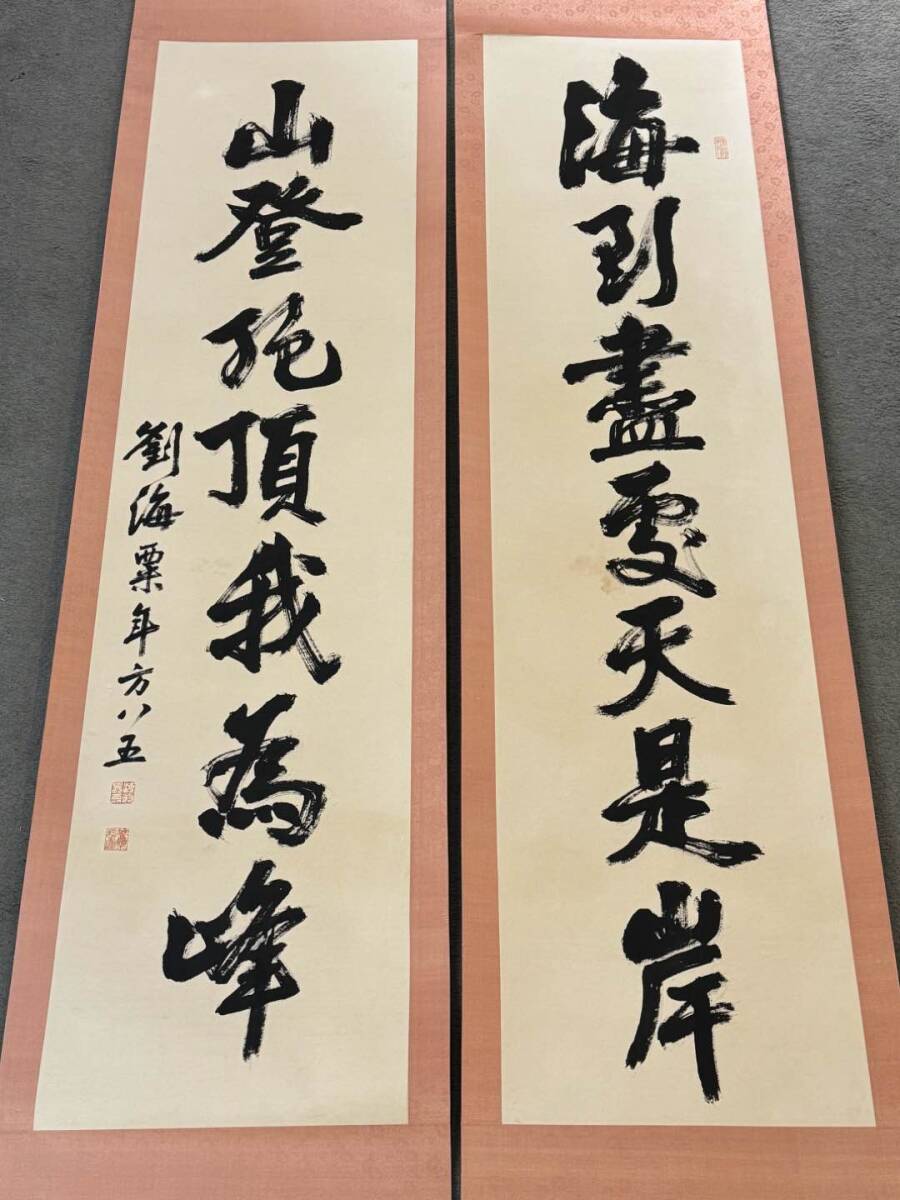 海到盡處天是岸
山登絶頂我為峰
劉海粟年方八五